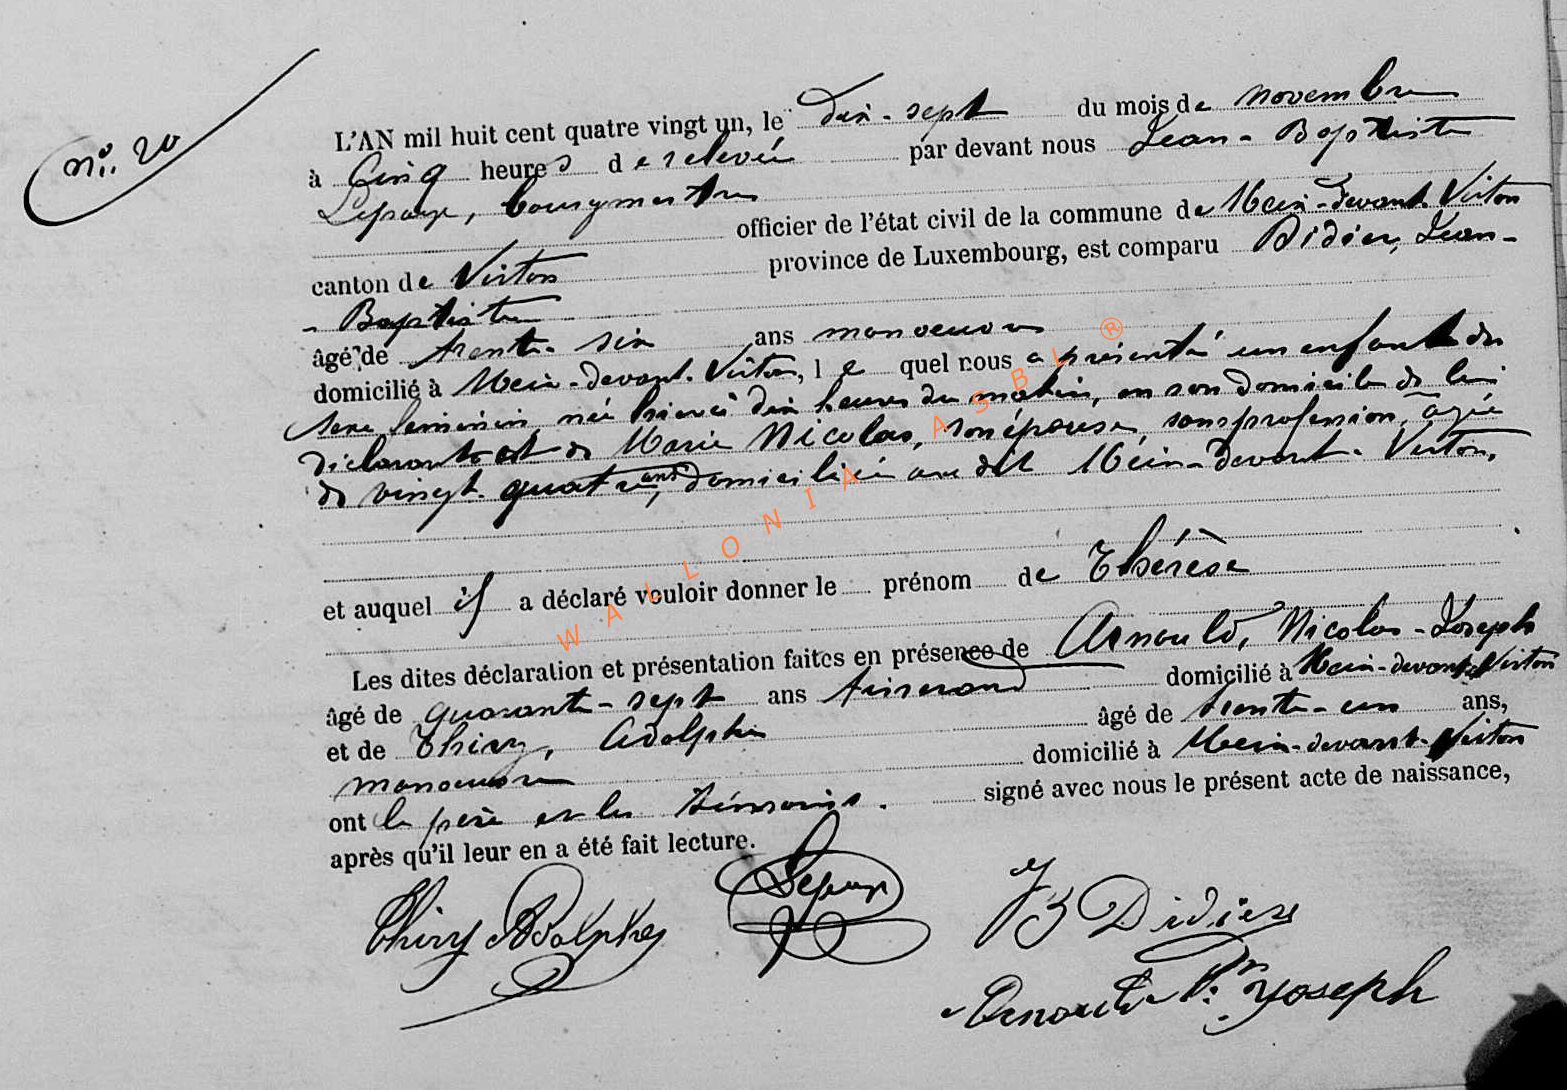 n°. 20
L'AN mil huit cent quatre vingt un, le dix-sept du mois de novembre
à Cinq heures de relevée par devant nous Jean-Baptiste
Lepage, bourgmestre
officier de l'état civil de la commune de Meix-devant-Virton
canton de Virton province de Luxembourg, est comparu Didier, Jean-
-Baptiste
âgé de trente-six ans manoeuvre
domicilié à Meix-devant-Virton, le quel nous a présenté un enfant du
sexe féminin, née hier à dix heures du matin, en son domicile de lui
déclarant et de Marie Nicolas, son épouse, sans profession, âgée
de vingt-quatre ans, domiciliée au dit Meix-devant-Virton,
et auquel il a déclaré vouloir donner le prénom de Thérèse
Les dites déclaration et présentation faites en présence de Arnould, Nicolas-Joseph
âgé de quarante-sept ans tisserand domicilié à Meix-devant-Virton
et de Thiry, Adolphe âgé de trente-un ans,
manoeuvre domicilié à Meix-devant-Virton
ont le père et les témoins. signé avec nous le présent acte de naissance,
après qu'il leur en a été fait lecture.
Thiry Adolphe Lepage JB Didier
Arnould Joseph
WALLONIA ASBL ®